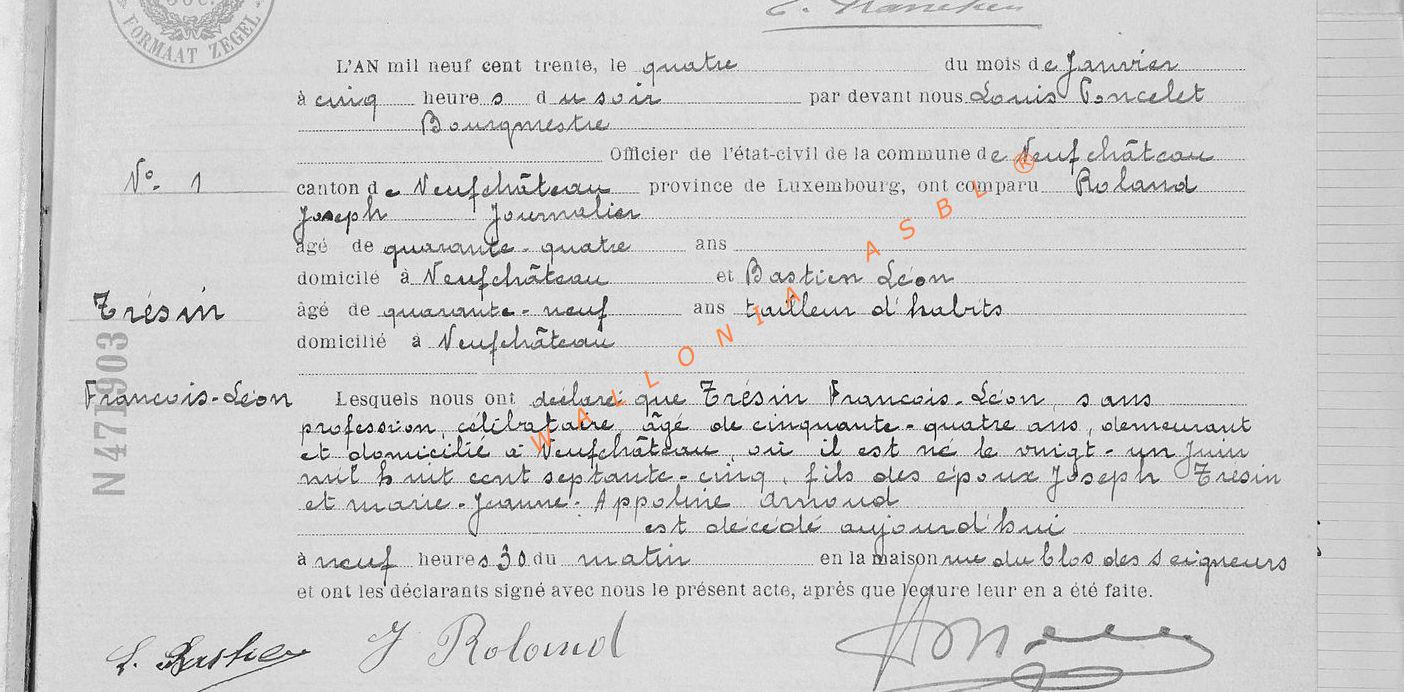 FORMAAT ZEGEL
L'AN mil neuf cent trente, le quatre du mois de Janvier
à cinq heures du soir par devant nous Louis Poncelet
Bourgmestre
Officier de l'état-civil de la commune de Neufchâteau
N° 1
canton de Neufchâteau province de Luxembourg, ont comparu Roland
Joseph Journalier
âgé de quarante-quatre ans
domicilé à Neufchâteau et Bastien Léon
Trésin
âgé de quarante-neuf ans tailleur d'habits
domicilié à Neufchâteau
N 471903
Francois-Léon
Lesquels nous ont déclaré que Trésin Francois-Léon, sans
profession, célibataire, âgé de cinquante-quatre ans, demeurant
et domicilié à Neufchâteau, où il est né le vingt-un Juin
mil huit cent septante-cinq, fils des époux Joseph Trésin
et marie-Jeanne-Appoline Arnoud
est décédé aujourd'hui
à neuf heures 30 du matin en la maison rue du Clos des seigneurs
et ont les déclarants signé avec nous le présent acte, après que lecture leur en a été faite.
L. Bastien J Roland
WALLONIA ASBL ®